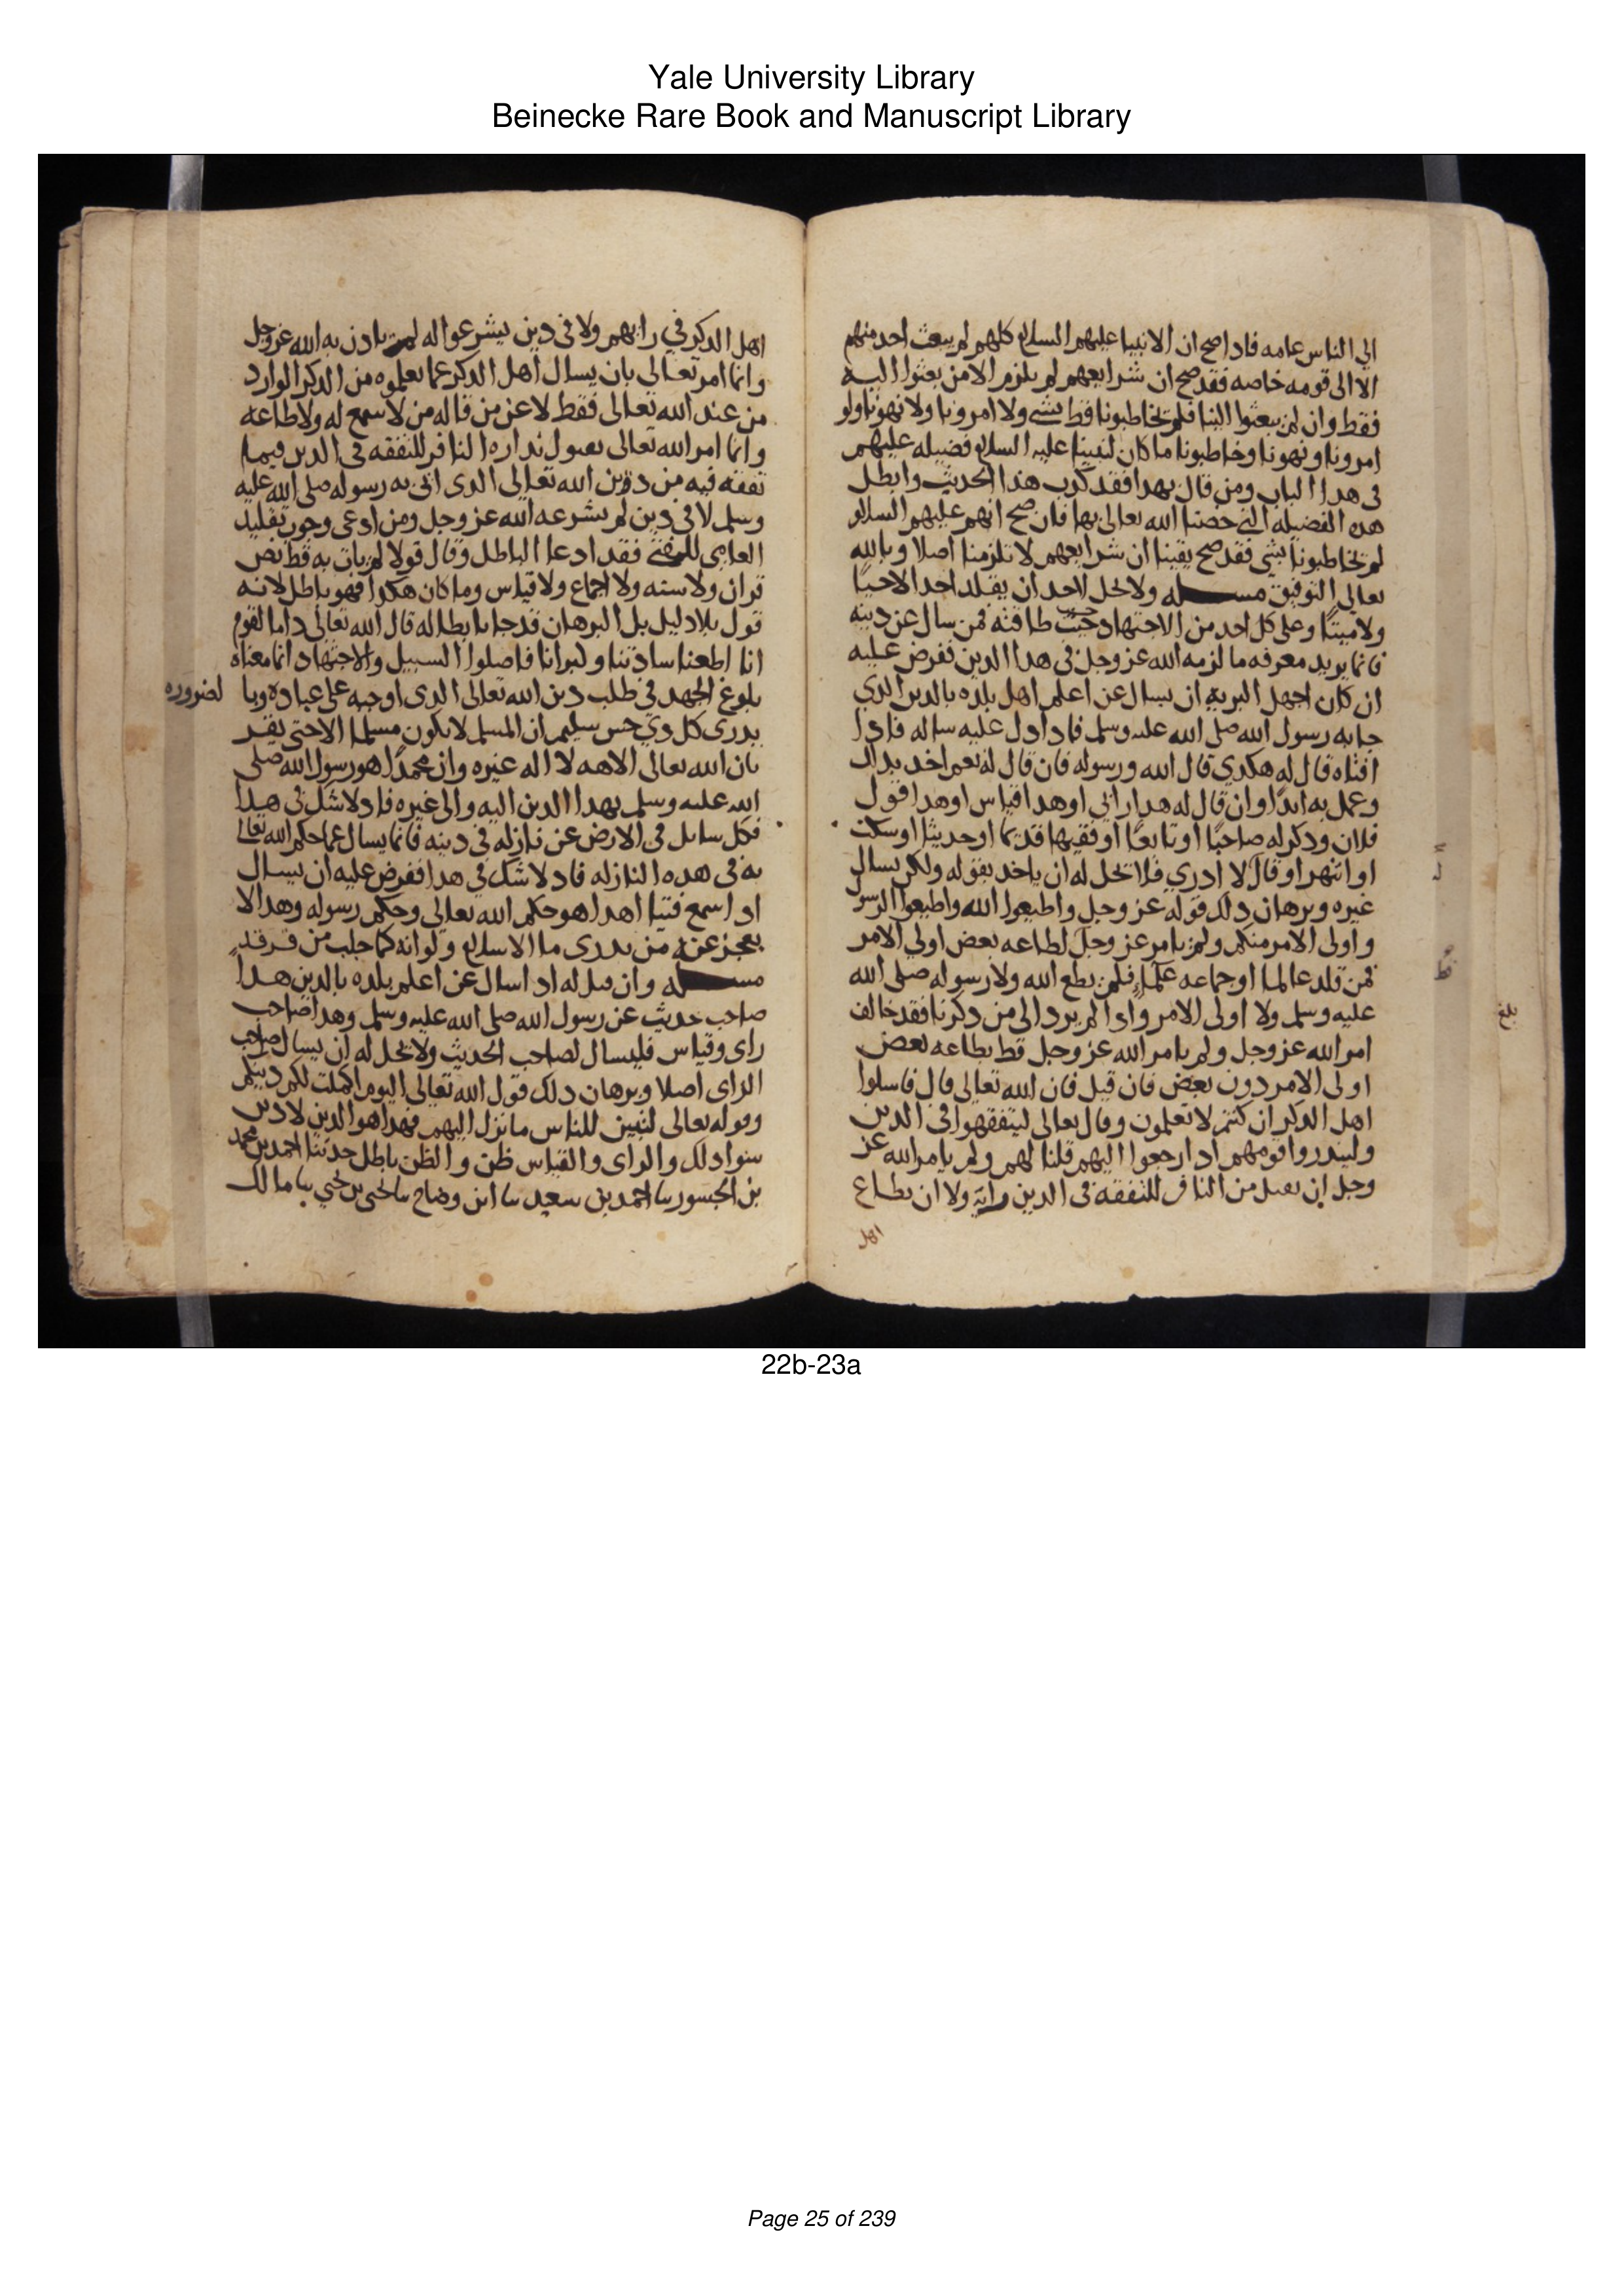 Yale University Library
Beinecke Rare Book and Manuscript Library
الى الناس عامه فاذا صح ان الانبيا عليهم السلام كلهم لم يبعث احد منهم
الا الى قومه خاصه فقد صح ان شرايعهم لم يلزم الا من بعثوا اليه
فقط وان لم يبعثوا الينا فلم يخاطبونا قط بشي ولا امرونا ولا نهونا ولو
امرونا ونهونا وخاطبونا ما كان لنبينا عليه السلام فضيله عليهم
فى هدا الباب ومن قال بهدا فقد كدب هدا الحديث وابطل
هده الفضيله التي خصنا الله تعالى بها فان صح انهم عليهم السلام
لم يخاطبونا بشي فقد صح يقينا ان شرايعهم لا تلزمنا اصلا وبالله
تعالى التوفيق مسـله ولا يحل لاحد ان يقلد احدا لا حيًا
ولا ميتًا وعلى كل احد من الاجتهاد حسب طاقته فمن سال عن دينه
فانما يريد معرفه ما لزمه الله عز وجل فى هدا الدين ففرض عليه
ان كان اجهل البريه ان يسال عن اعلم اهل بلده بالدين الدي
جا به رسول الله صلى الله عليه وسلم فادا دل عليه ساله فادا
افتاه قال له هكدي قال الله ورسوله فان قال له نعم اخد بدلك
وعمل به ابدًا وان قال له هدا رايي او هدا قياس او هدا قول
فلان ودكر له صاحبًا او تابعًا او فقيها قديما او حديثا او سكت
او انتهر او قال لا ادري فلا يحل له ان ياخد بقوله ولكن يسال
غيره وبرهان دلك قوله عز وجل واطيعوا الله واطيعوا الرسول
واولى الامر منكم ولم يامر عز وجل لطاعه بعض اولى الامر
فمن قلد عالما او جماعه علما فلم يطع الله ولا رسوله صلى الله
عليه وسلم ولا اولى الامر وادا لم يرد الى من دكرنا فقد خالف
امر الله عز وجل ولم يامر الله عز وجل قط بطاعه بعض
اولى الامر دون بعض فان قيل فان الله تعالى قال فاسلوا
اهل الدكر ان كنتم لا تعلمون وقال تعالى ليتفقهوا فى الدين
ولينذروا قومهم ادا رجعوا اليهم قلنا لهم ولم يامر الله عز
وجل ان يقبل من النافر للتفقه فى الدين رايه ولا ان يطاع
اهل
بلغ
اهل الدكر في رايهم ولا فى دين يشرعوا له لم يادن به الله عز وجل
وانما امر تعالى بان يسال اهل الدكر عما يعلموه من الدكر الوارد
من عند الله تعالى فقط لا عن من قاله من لا سمع له ولا طاعه
وانما امر الله تعالى بقبول نداره النافر للتفقه فى الدين فيما
تفقه فيه من دين الله تعالى الدى اتى به رسوله صلى الله عليه
وسلم لا فى دين لم يشرعه الله عز وجل ومن ادعى وجوب تقليد
العامى للمفتى فقد ادعا الباطل وقال قولا لم يات به قط نص
قران ولا سنه ولا اجماع ولا قياس وما كان هكدا فهو باطل لانه
قول بلا دليل بل البرهان قد جا بابطاله قال الله تعالى داما لقوم
انا اطعنا سادتنا وكبرانا فاصلوا السبيل والاجتهاد انما معناه
بلوغ الجهد فى طلب دين الله تعالى الدى اوجبه على عباده وبا لضروره
يدرى كل دي حس سليم ان المسلم لا يكون مسلما الا حتى يقر
بان الله تعالى الاهه لا اله غيره وان محمدًا هو رسول الله صلى
الله عليه وسلم بهدا الدين اليه والى غيره فاد لا شك فى هدا
فكل سايل فى الارض عن نازله فى دينه فانما يسال عما حكم الله تعالى
به فى هده النازله فاد لا شك فى هدا ففرض عليه ان يسال
ادا سمع فتيا اهدا هو حكم الله تعالى وحكم رسوله وهدا لا
يعجز عنه من يدرى ما الاسلام ولو انه كما جلب من
مسـله وان قيل له ادا سال عن اعلم بلده بالدين هدا
صاحب حديث عن رسول الله صلى الله عليه وسلم وهدا صاحب
راى وقياس فليسال لصاحب الحديث ولا يحل له ان يسال صاحب
الراى اصلا وبرهان دلك قول الله تعالى اليوم اكملت لكم دينكم
وقوله تعالى لتبين للناس ما نزل اليهم فهدا هو الدين لا دين
سوا دلك والراى والقياس ظن والظن باطل حدثنا احمد بن محمد
بن الجسور نا احمد بن سعيد نا ابن وضاح نا يحيى بن يحيى نا مالك
22b-23a
Page 25 of 239